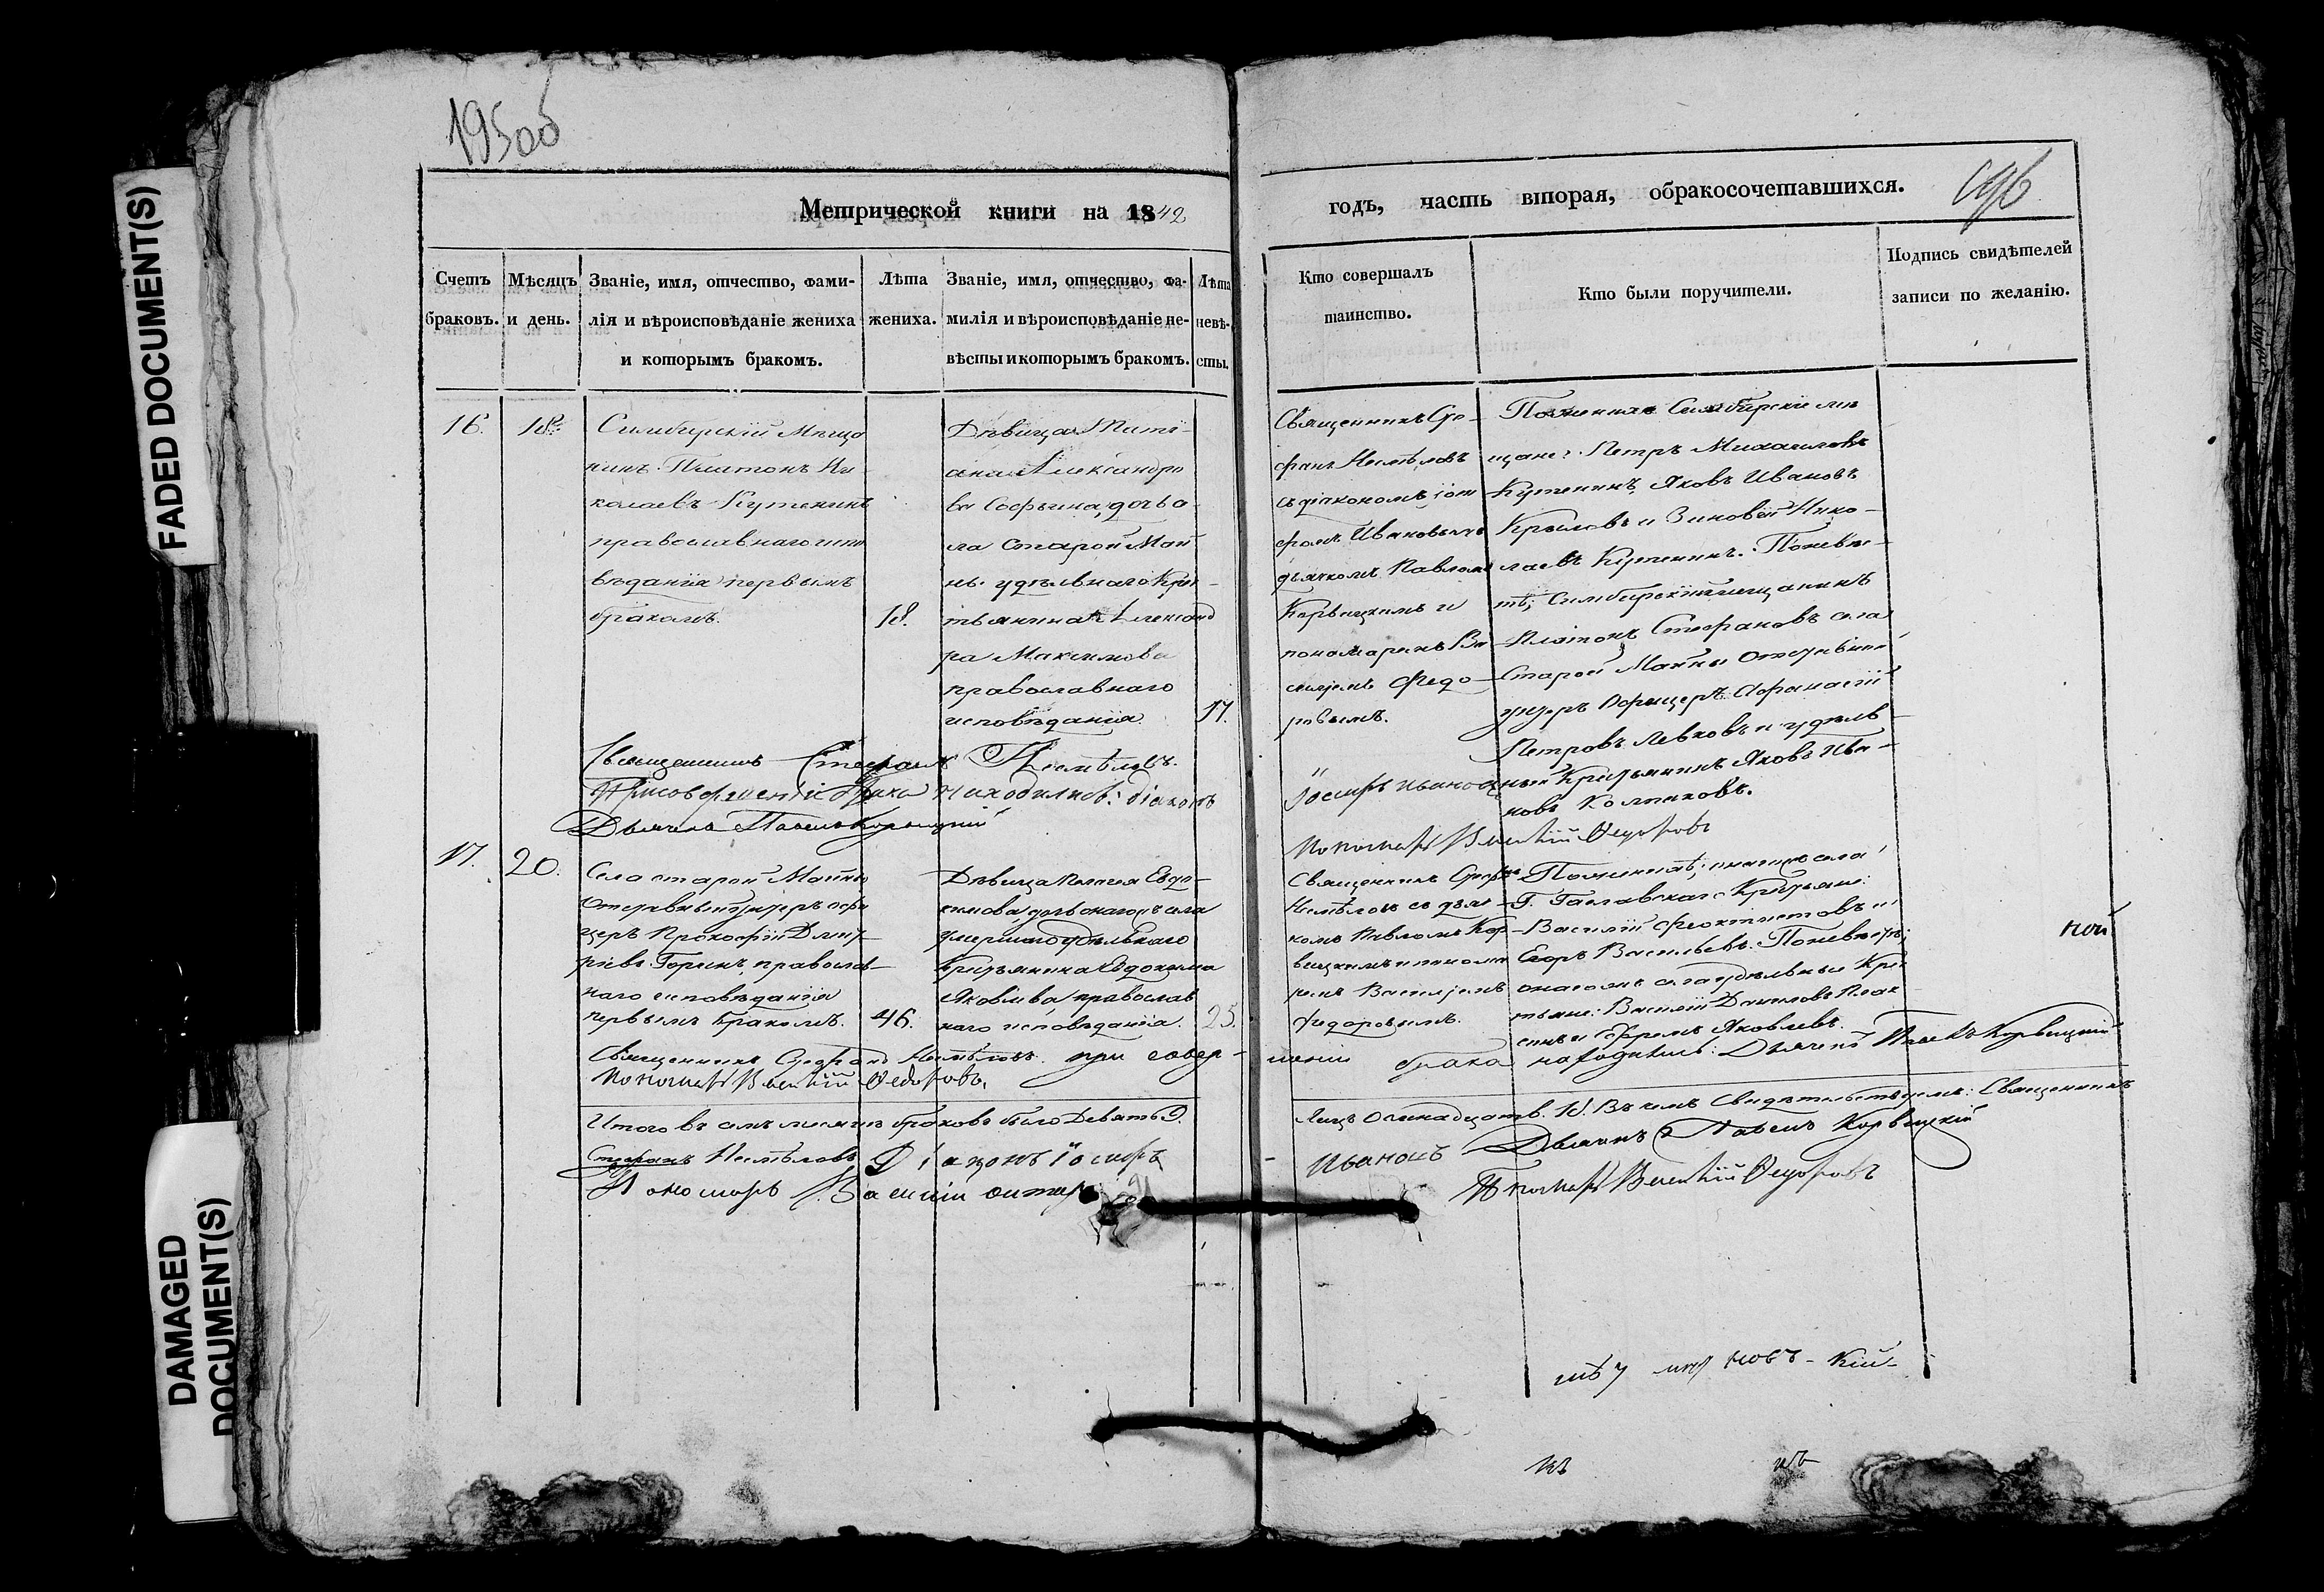 195об
196
Метрической книги на 1842
годъ, часть вторая, обракосочетавшихся.
Счетъ браковъ.
Мѣсяцъ и день.
Званіе, имя, отчество, фами-
лія и вѣроисповѣданіе жениха
и которымъ бракомъ.
Лѣта
жениха.
Званіе, имя, отчество, фа-
милія и вѣроисповѣданіе не-
вѣсты и которымъ бракомъ.
Лѣта
невѣ-
сты.
Кто совершалъ
таинство.
Кто были поручители.
Подпись свидѣтелей
записи по желанію.
16.
18.
Симбирскій Мѣща
нинъ Платонъ Ни
колаевъ Кутенинъ
православнаго испо
вѣданія первымъ
бракомъ.
18.
Дѣвица Татi-
ана Александро
ва Софьина, дочь о
села Старой Май
ны удѣльнаго Крес-
тьянина Александ
ра Максимова
православнаго
исповѣданія
17.
Священникъ Сте-
фанъ Несмѣловъ
съ діакономъ Іоси
фомъ Ивановымъ
дьячкомъ Павломъ
Корвицкимъ и
пономаремъ Ва
силіемъ Федо-
ровымъ.
По женихѣ Симбирскіе мѣ
щане: Петръ Михаиловъ
Кутенинъ, Яковъ Ивановъ
Крыловъ и Зиновей Нико-
лаевъ Кутенинъ. По невѣс-
тѣ; Симбирскій мещанинъ
Платонъ Стефановъ села
Старой Майны Отставной
унтеръ Офицеръ Афанасій
Петровъ Левковъ и удѣль-
ный Крестьянинъ Яковъ Ива-
новъ Колпаковъ.
Священникъ Стефанъ Несмѣловъ.
При совершеніи брака находились: діаконъ
Іосифъ Ивановъ
Дьячекъ Павелъ Корвицкій
Пономарь Василій Ѳедоровъ
17.
20.
Села старой Майны
Отставный Унтеръ офи
церъ Прокофій Дмит-
ріевъ Горинъ, православ-
наго исповѣданія
первымъ бракомъ.
46.
Дѣвица Евдо-
кимова, дочь онагожъ села
умершаго удѣльнаго
Крестьянина Евдокима
Яковлева, православ
наго исповѣданія.
25.
Священникъ Стефанъ
Несмѣловъ съ дьяч-
комъ Павломъ Кор-
вицкимъ и понома
ремъ Василіемъ
Федоровымъ.
По женихѣ; онагожъ села
Г. Крестьяне:
Василій Феоктистовъ и
Егоръ Васильевъ. По невѣстѣ;
онагожъ села удѣльные Крес
тьяне: Василій Даниловъ
и Ефремъ Яковлевъ.
ной
Священникъ Стефанъ Несмѣловъ. при совер-
шеніи брака находились: Дьячекъ Павелъ Корвицкій
Пономарь Василій Ѳедоровъ,
Итого въ семъ мѣсяцѣ браковъ было Девять 9.
Лицъ Осмнадцать. 18. Въ чемъ Свидѣтельствуемъ: Священникъ
Стефанъ Несмѣловъ Діаконъ Іосифъ
Ивановъ Дьячекъ Павелъ Корвицкій
Пономарь Василій
Пономарь Василій Ѳедоровъ
новъ - кій -
FADED DOCUMENT(S)
DAMAGED
DOCUMENT(S)